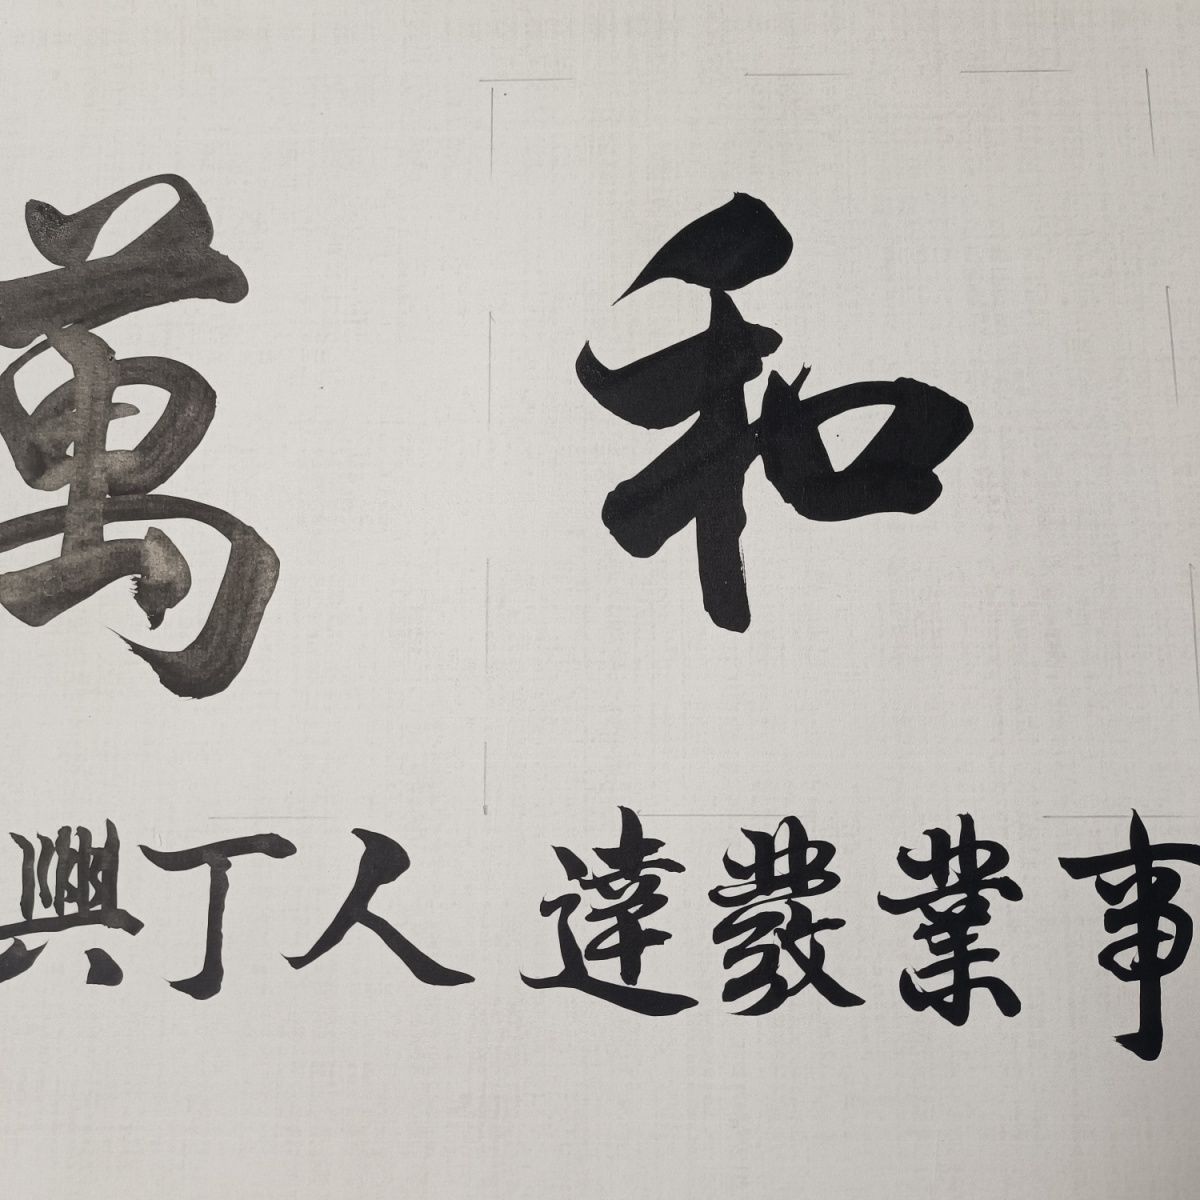 和萬
事業發達人丁興